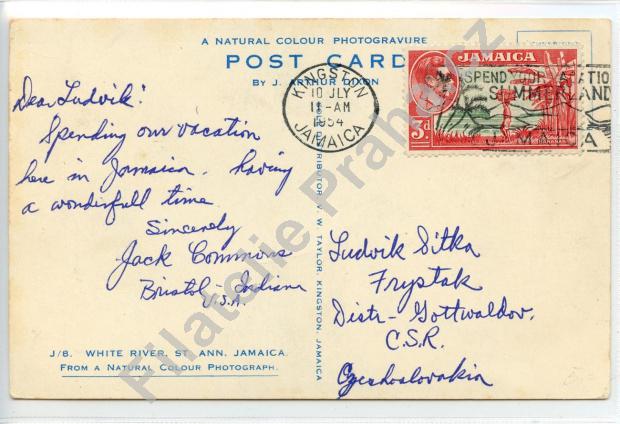 A NATURAL COLOUR PHOTOGRAVURE
POST CARD
By J. ARTHUR DIXON
KINGSTON
10 JLY
11-AM
1954
JAMAICA
JAMAICA
3d
SPEND YOUR VACATION
SUMMERLAND
JAMAICA
Dear Ludvik:
Spending our vacation
here in Jamaica. having
a wonderfull time
Sincerely
Jack Commons
Bristol - Indiana
U.S.A.
Ludvik Sitka
Frystak
Distr- Gottwaldov.
C.S.R.
Czechoslovakia
DISTRIBUTOR W. TAYLOR, KINGSTON, JAMAICA
J/8. WHITE RIVER, ST. ANN, JAMAICA.
FROM A NATURAL COLOUR PHOTOGRAPH.
Filatelie Praha.cz